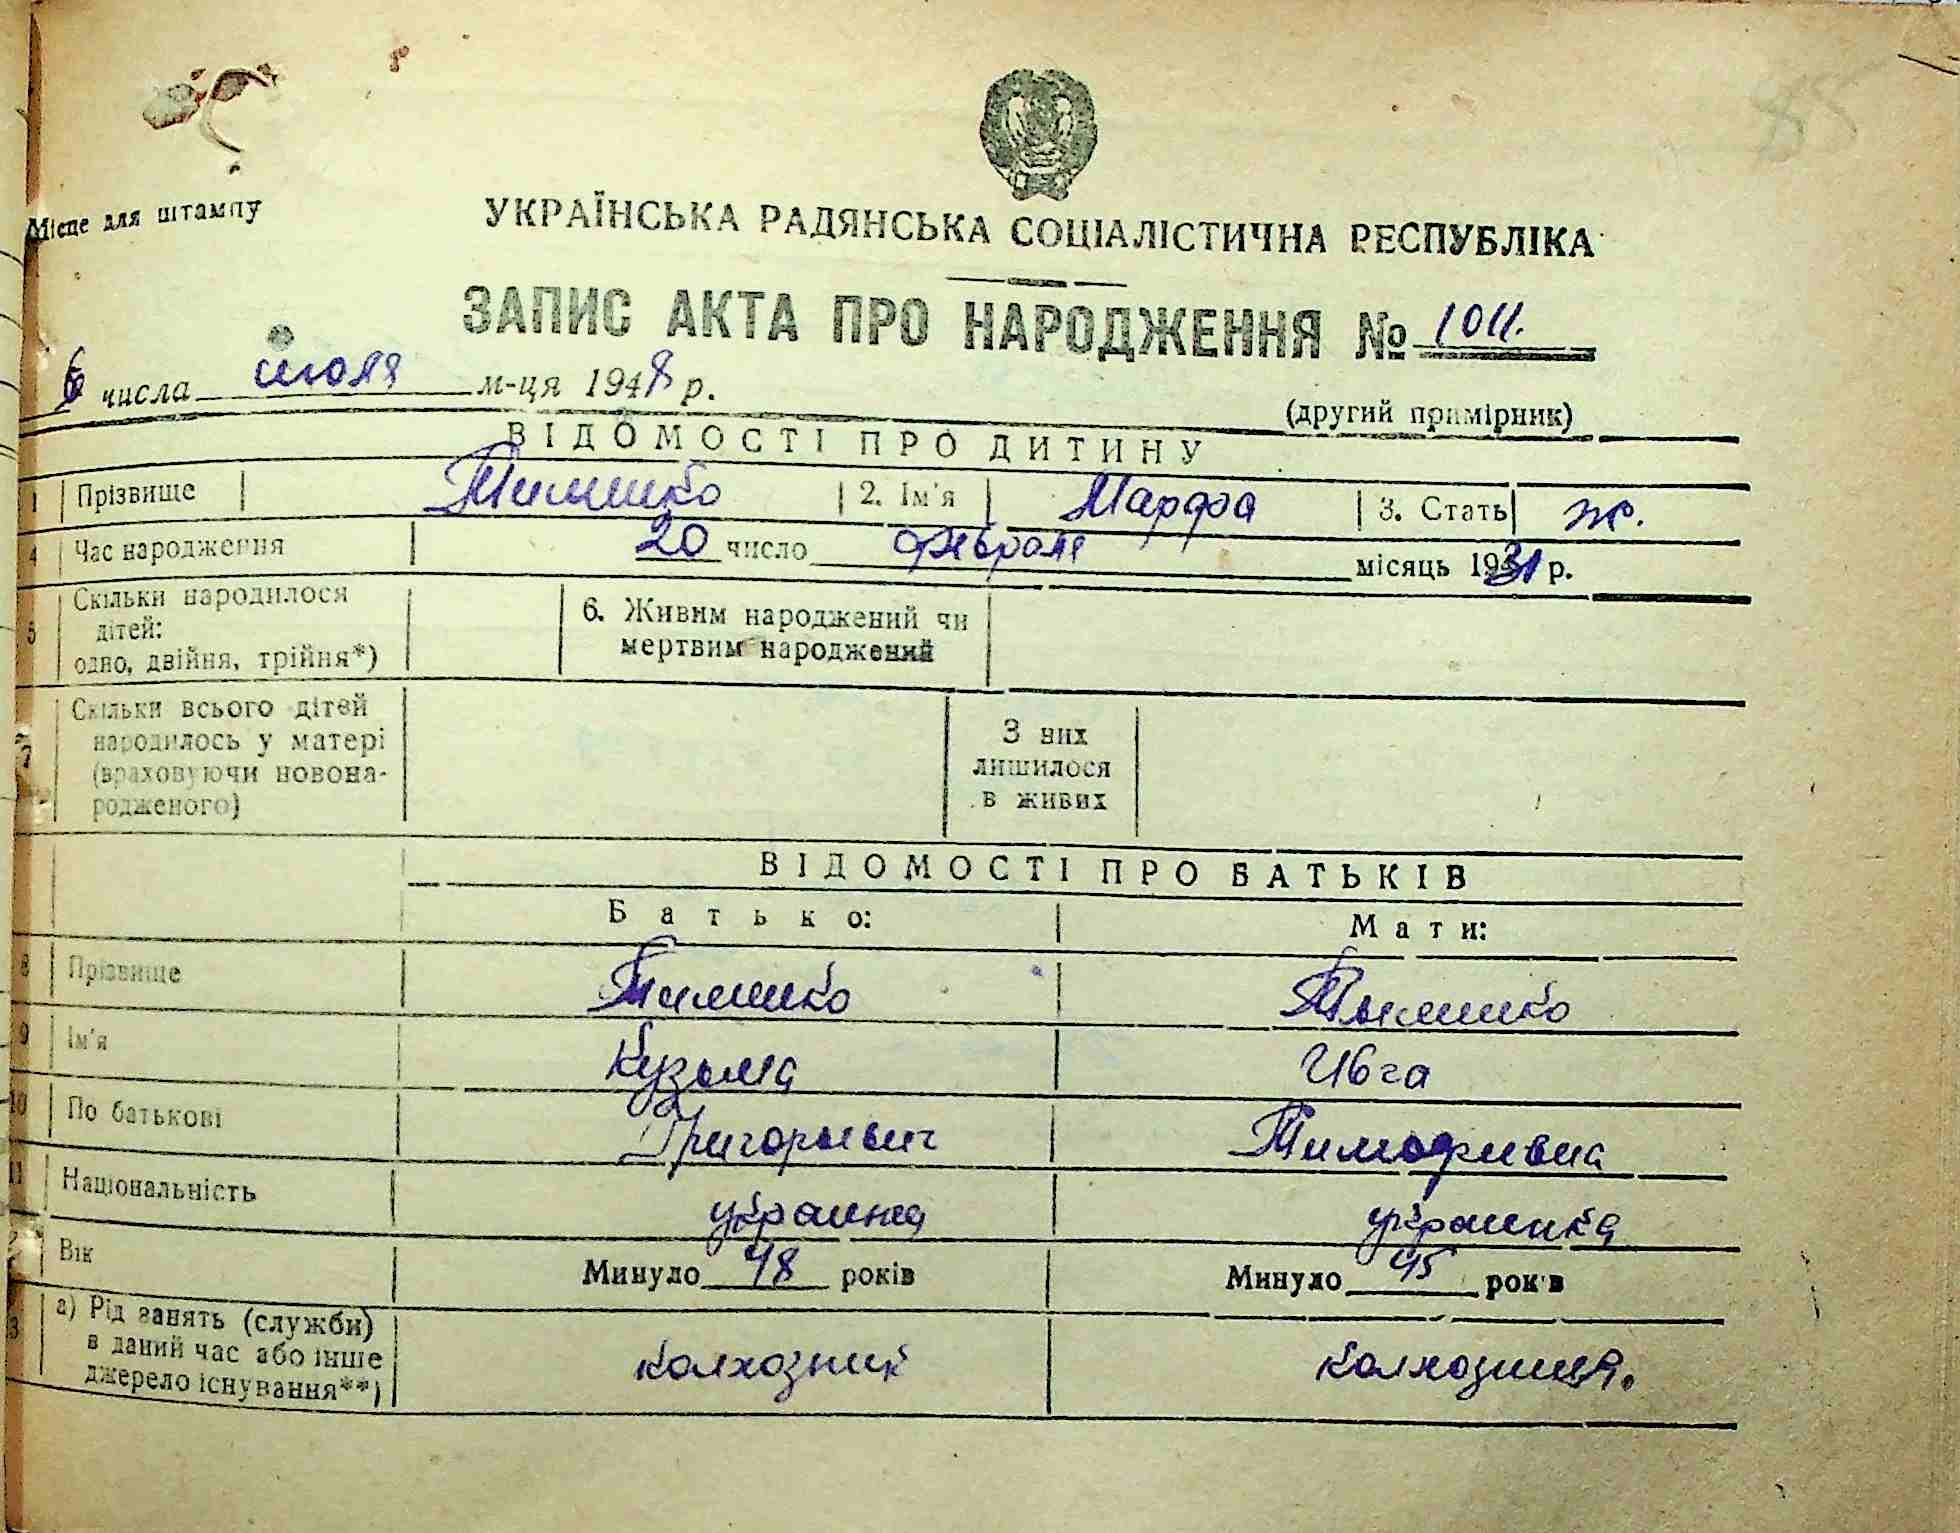 85
Місце для штампу
УКРАЇНСЬКА РАДЯНСЬКА СОЦІАЛІСТИЧНА РЕСПУБЛІКА
ЗАПИС АКТА ПРО НАРОДЖЕННЯ № 1011.
6 числа июля м-ця 1948 р.
(другий примірник)
ВІДОМОСТІ ПРО ДИТИНУ
1 Прізвище Тимшко 2. Ім'я Марфа 3. Стать ж.
4 Час народження 20 число февраля місяць 1931 р.
5 Скільки народилося дітей: одно, двійня, трійня*) 6. Живим народжений чи мертвим народжений
7 Скільки всього дітей народилось у матері (враховуючи новонародженого) З них лишилося в живих
ВІДОМОСТІ ПРО БАТЬКІВ
Батько: Мати:
8 Прізвище Тимшко Тымшко
9 Ім'я Кузьма Ивга
10 По батькові Григорьевич Тимофивна
11 Національність украинец украинка
Вік Минуло 48 років Минуло 45 років
а) Рід занять (служби) в даний час або інше джерело існування**) колхозник колхозница.